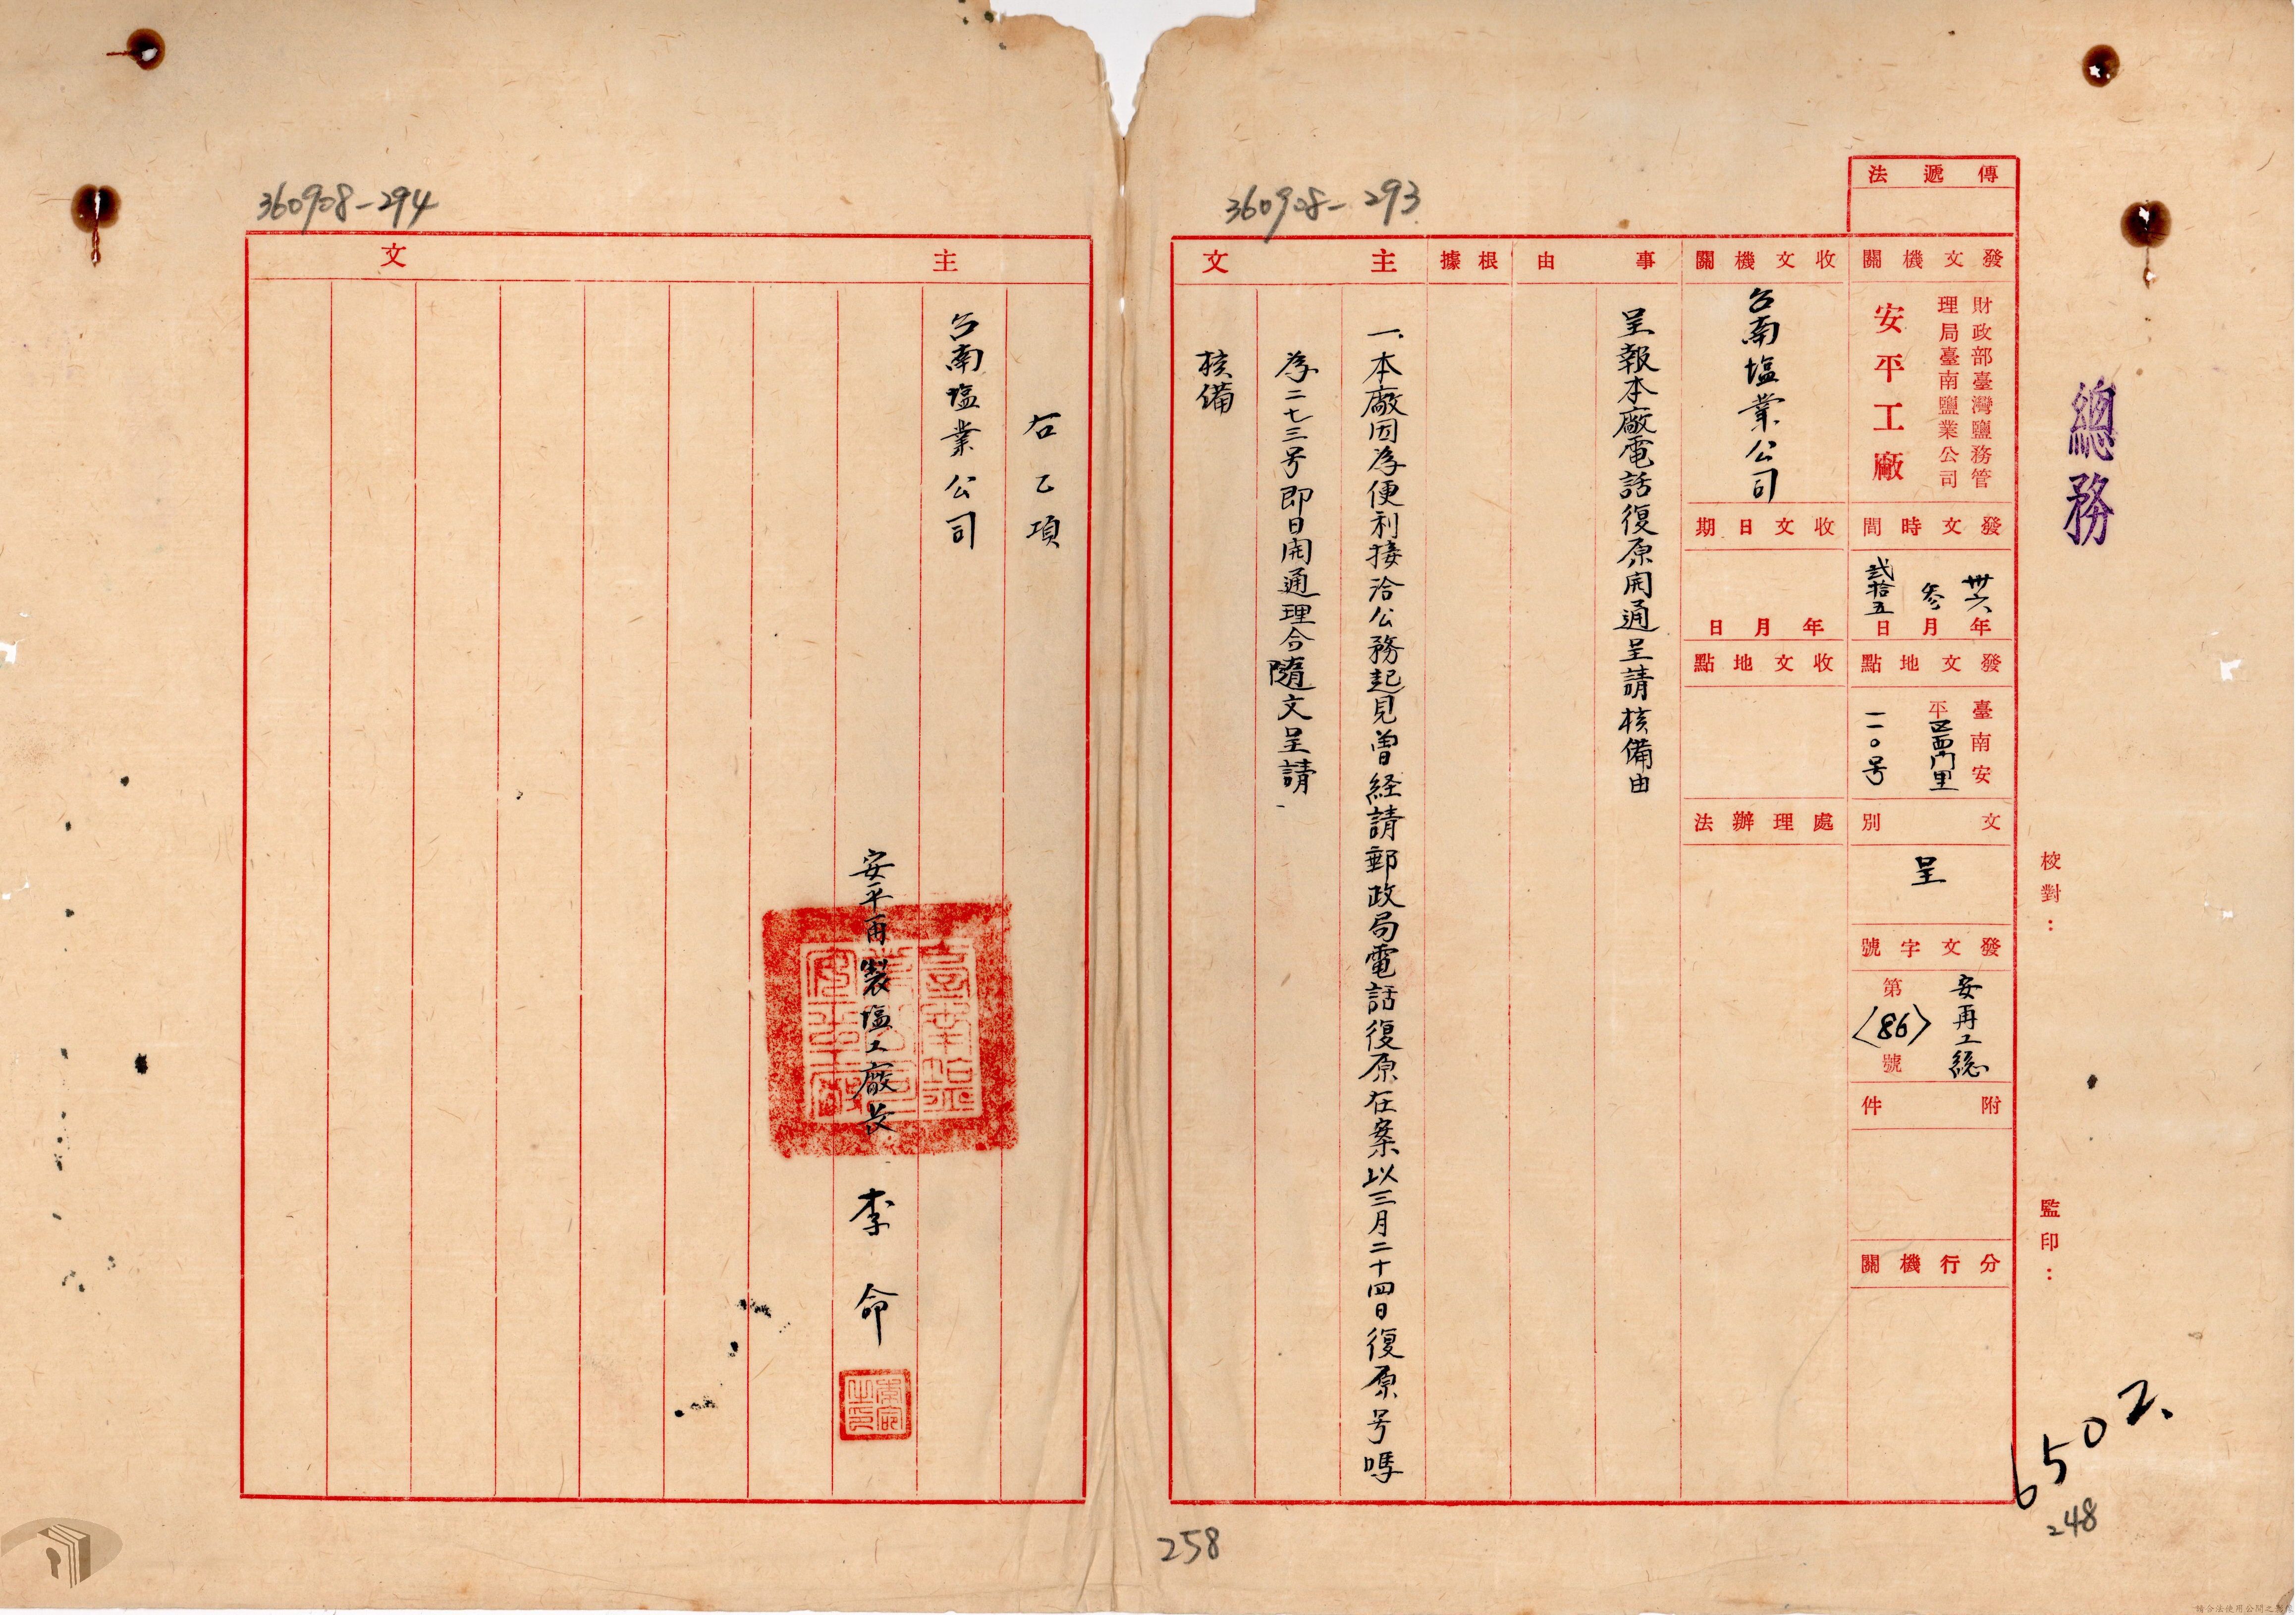 總務
校對：
監印：
傳遞法
發文機關
財政部臺灣鹽務管
理局臺南鹽業公司
安平工廠
發文時間
卅六年
參月
貳拾五日
發文地點
臺南安
平区西門里
一一〇号
文別
呈
發文字號
安再工總
第
〈86〉
號
附件
分行機關
收文機關
台南塩業公司
收文日期
年月日
收文地點
處理辦法
事由
呈報本廠電話復原開通呈請核備由
根據
主文
一、本廠因為便利接洽公務起見曾経請郵政局電話復原在案以三月二十四日復原号嗎
為二七三号即日開通理合隨文呈請
核備
360908-293
6502.
248
258
360908-294
主文
右乙項
台南塩業公司
安平再製塩工廠長 李命